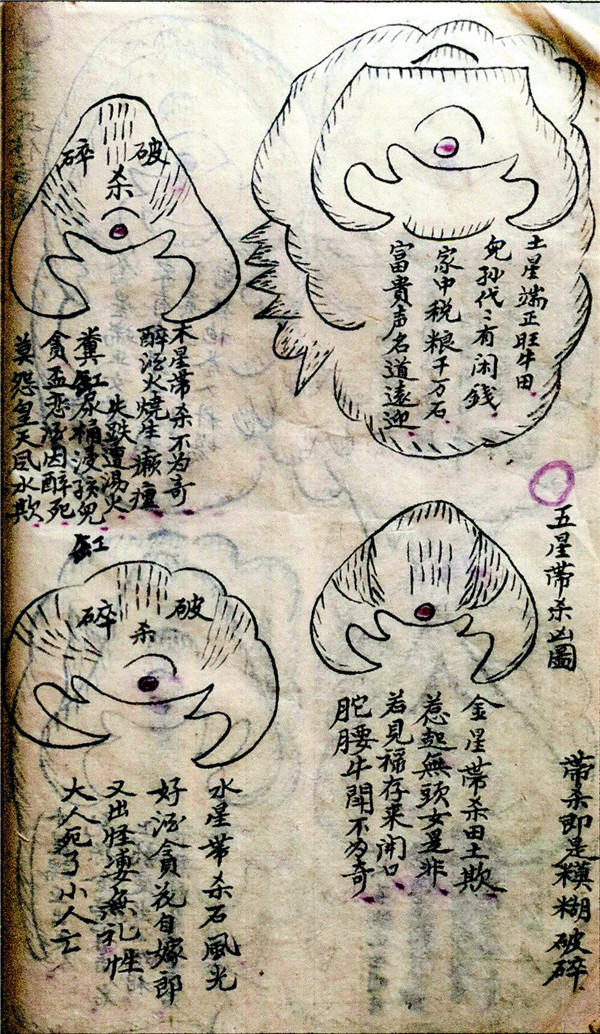 土星端正旺牛田
兒孫代〻有闲錢
家中税粮千万石
富貴声名道遠迎
五星带杀凶圖
带杀即是糢糊破碎
金星带杀田土欺
惹起無頭女是非
若見福存来開口
陀腰牛鬧不为奇
破 杀 碎
木星带杀不为奇
醉酒火燒生癞瘇
失跌遭湯火
糞缸尿桶浸孩兒
貪盃恋酒因醉死
莫怨皇天風水欺
缸
破 杀 碎
水星带杀石風光
好酒貪花自嫁郎
又出怪凄無礼性
大人死了小人亡